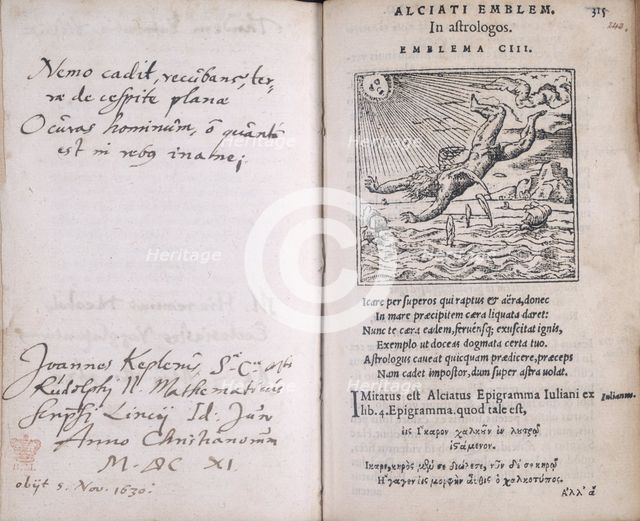 Nemo cadit, recūbans, ter-
ræ de cespite planæ
O cūras hominūm, ō quāntū
est in rebꝰ inane;
Joannes Keplerus, Sæ. Cæ. Mtis
Rūdolphi II. Mathematicus
scripsi Lincij Id. Jun
Anno Christianorum
M. DC XI.
obijt 5. Nov. 1630.
ALCIATI EMBLEM. 315
In astrologos. 242.
EMBLEMA CIII.
Icare per superos qui raptus & aëra, donec
In mare præcipitem cæra liquata daret:
Nunc te cæra eadem, feruénsq; exuscitat ignis,
Exemplo ut doceas dogmata certa tuo.
Astrologus caueat quicquam prædicere, præceps
Nam cadet impostor, dum super astra uolat.
IMitatus est Alciatus Epigramma Iuliani ex Iulianus.
lib. 4. Epigramma, quod tale est,
εἰς Ἴκαρον χαλκοῦν ἐν λουτρῷ
ἱστάμενον.
Ἴκαρε, κηρὸς μέν σε διώλεσε, νῦν δέ σε κηρῷ
Ἤγαγεν εἰς μορφὴν αὖθις ὁ χαλκοτύπος.
Ἀλλ' ἂ
Heritage
Heritage
Heritage
Heritage
Heritage
C